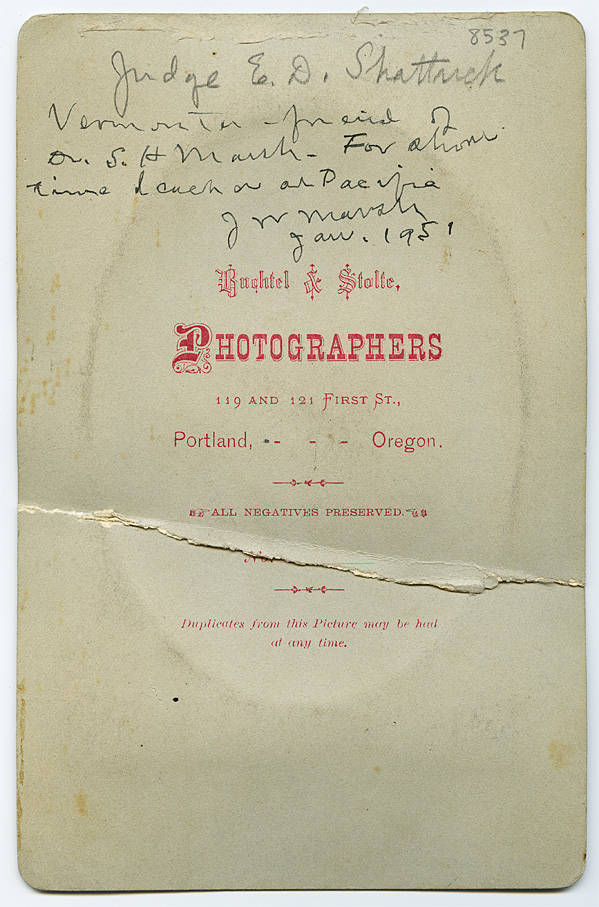 8537
Judge E. D. Shattuck
Vermonter - friend of
Dr. S. H Marsh - For short
time teacher at Pacific
J W Marsh
Jan. 1951
Buchtel & Stolte,
PHOTOGRAPHERS
119 AND 121 FIRST ST.,
Portland, - - - Oregon.
ALL NEGATIVES PRESERVED.
No.
Duplicates from this Picture may be had
at any time.